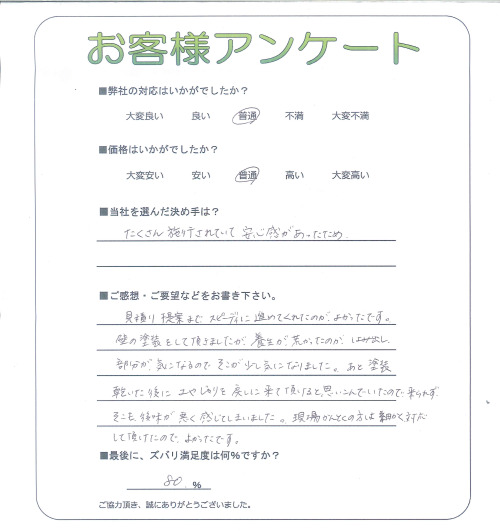 お客様アンケート
■弊社の対応はいかがでしたか？
大変良い 良い 普通 不満 大変不満
■価格はいかがでしたか？
大変安い 安い 普通 高い 大変高い
■当社を選んだ決め手は？
たくさん施行されていて安心感があったため
■ご感想・ご要望などをお書き下さい。
見積り提案まで スピーディに進めてくれたのが、よかったです。
壁の塗装をして頂きましたが 養生が、荒かったのか、はみ出し
部分が、気になるので そこが少し気になりました。あと 塗装
乾いた後に を戻しに来て頂けると思いこんでいたので、来られず
そこも、後味が 悪く感じてしまいました。現場かんとくの方は 細かく対応
して頂けたので、よかったです。
■最後に、ズバリ満足度は何%ですか？
80 %
ご協力頂き、誠にありがとうございました。